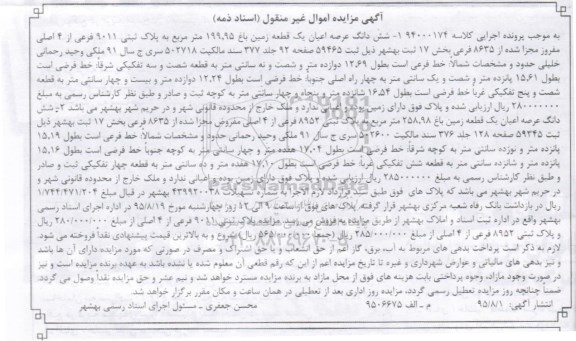 آگهی مزایده اموال غیر منقول (اسناد ذمه)
به موجب پرونده اجرایی کلاسه ۹۴۰۰۰۱۷۴ ۱- شش دانگ عرصه اعیان یک قطعه زمین باغ ۱۹۹،۹۵ متر مربع به پلاک ثبتی ۹۰۱۱ فرعی از ۴ اصلی
مفروز مجزا شده از ۸۶۳۵ فرعی بخش ۱۷ ثبت بهشهر ذیل ثبت ۵۹۴۶۵ صفحه ۹۲ جلد ۳۷۷ سند مالکیت ۵۰۲۷۱۸ سری ج سال ۹۱ ملکی وحید رحمانی
خلیلی حدود و مشخصات شمالا: خط فرعی است بطول ۱۲،۶۹ دوازده متر و شصت و نه سانتی متر به قطعه شصت و سه تفکیکی شرقاً: خط فرضی است
۱۵،۶۱ پانزده متر و شصت و یک سانتی متر به چهار راه اصلی جنوباً: خط فرضی است بطول ۱۲،۲۴ دوازده متر و بیست و چهار سانتی متر به قطعه
شصت و پنج تفکیکی غرباً خط فرضی است بطول ۱۶،۵۴ شانزده متر و پنجاه و چهار سانتی متر به کوچه ثبت و صادر و طبق نظر کارشناس رسمی به مبلغ
۲۸۰۰۰۰۰۰۰ ریال ارزیابی شده و پلاک فوق دارای زمین ندارد و ملک خارج از محدوده قانونی شهر و در حریم شهر بهشهر می باشد ۲- شش
دانگ عرصه اعیان یک قطعه زمین باغ ۲۵۸،۹۸ متر مربع ۸۹۵۲ فرعی از ۴ اصلی مفروض مجزا شده از ۸۶۳۵ فرعی از بخش ۱۷ ثبت بهشهر ذیل
ثبت ۵۹۲۴۵ صفحه ۱۲۸ جلد ۳۷۶ سند مالکیت سری ج سال ۹۱ ملکی وحید رحمانی حدود و مشخصات شمالا: خط فرضی است بطول ۱۵،۱۹
پانزده متر و نوزده سانتی متر به کوچه شرقاً: خط فرضی است بطول ۱۷،۰۴ هفده متر و چهار سانتی متر به کوچه جنوباً خط فرضی است بطول ۱۵،۱۶
پانزده متر و شانزده سانتی متر به قطعه شش تفکیکی غرباً: خط فرضی است بطول ۱۷،۱۰ هفده متر و ده سانتی متر به قطعه چهار تفکیکی ثبت و صادر
و طبق نظر کارشناس رسمی به مبلغ ۲۸۵۰۰۰۰۰۰ ریال ارزیابی شده و پلاک فوق دارای زمین بوده و اعیانی ندارد و ملک خارج از محدوده قانونی شهر و
در حریم شهر بهشهر می باشد که پلاک های فوق طبق بهشهر در قبال مبلغ ۱/۷۴۴/۴۷۱/۲۰۴
ریال در بازداشت بانک رفاه شعبه مرکزی بهشهر قرار گرفته، پلاک های فوق از ساعت ۹ الی ۱۲ روز چهارشنبه مورخ ۹۵/۸/۱۹ در اداره اجرای اسناد رسمی
بهشهر واقع در اداره ثبت اسناد و املاک بهشهر از طریق مزایده به فروش می رسد، مزایده پلاک ثبتی ۹۰۱۱ فرعی از ۴ اصلی از مبلغ ۲۸۰/۰۰۰/۰۰۰ ریال
و پلاک ثبتی ۸۹۵۲ فرعی از ۴ اصلی از مبلغ ۲۸۵/۰۰۰/۰۰۰ ریال شروع و به بالاترین قیمت پیشنهادی نقداً فروخته می شود.
لازم به ذکر است پرداخت بدهی های مربوط به آب، برق، گاز اعم از حق انشعاب و یا حق اشتراک و مصرف در صورتی که مورد مزایده دارای آن ها باشد
و نیز بدهی های مالیاتی و عوارض شهرداری و غیره تا تاریخ مزایده اعم از این که رقم قطعی آن معلوم شده یا نشده باشد به عهده برنده مزایده است و نیز
در صورت وجود مازاد، وجوه پرداختی بابت هزینه های فوق از محل مازاد به برنده مزایده مسترد خواهد شد و نیم عشر و حق مزایده نقداً وصول می گردد.
ضمناً چنانچه روز مزایده تعطیل رسمی گردد، مزایده روز اداری بعد از تعطیلی در همان ساعت و مکان مقرر برگزار خواهد شد.
انتشار آگهی: ۹۵/۸/۱ م - الف ۹۵۰۶۶۷۵ محسن جعفری - مسئول اجرای اسناد رسمی بهشهر